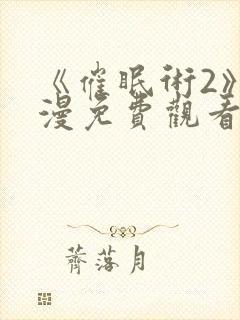 《催眠術2》
漫免費觀看
薺落月